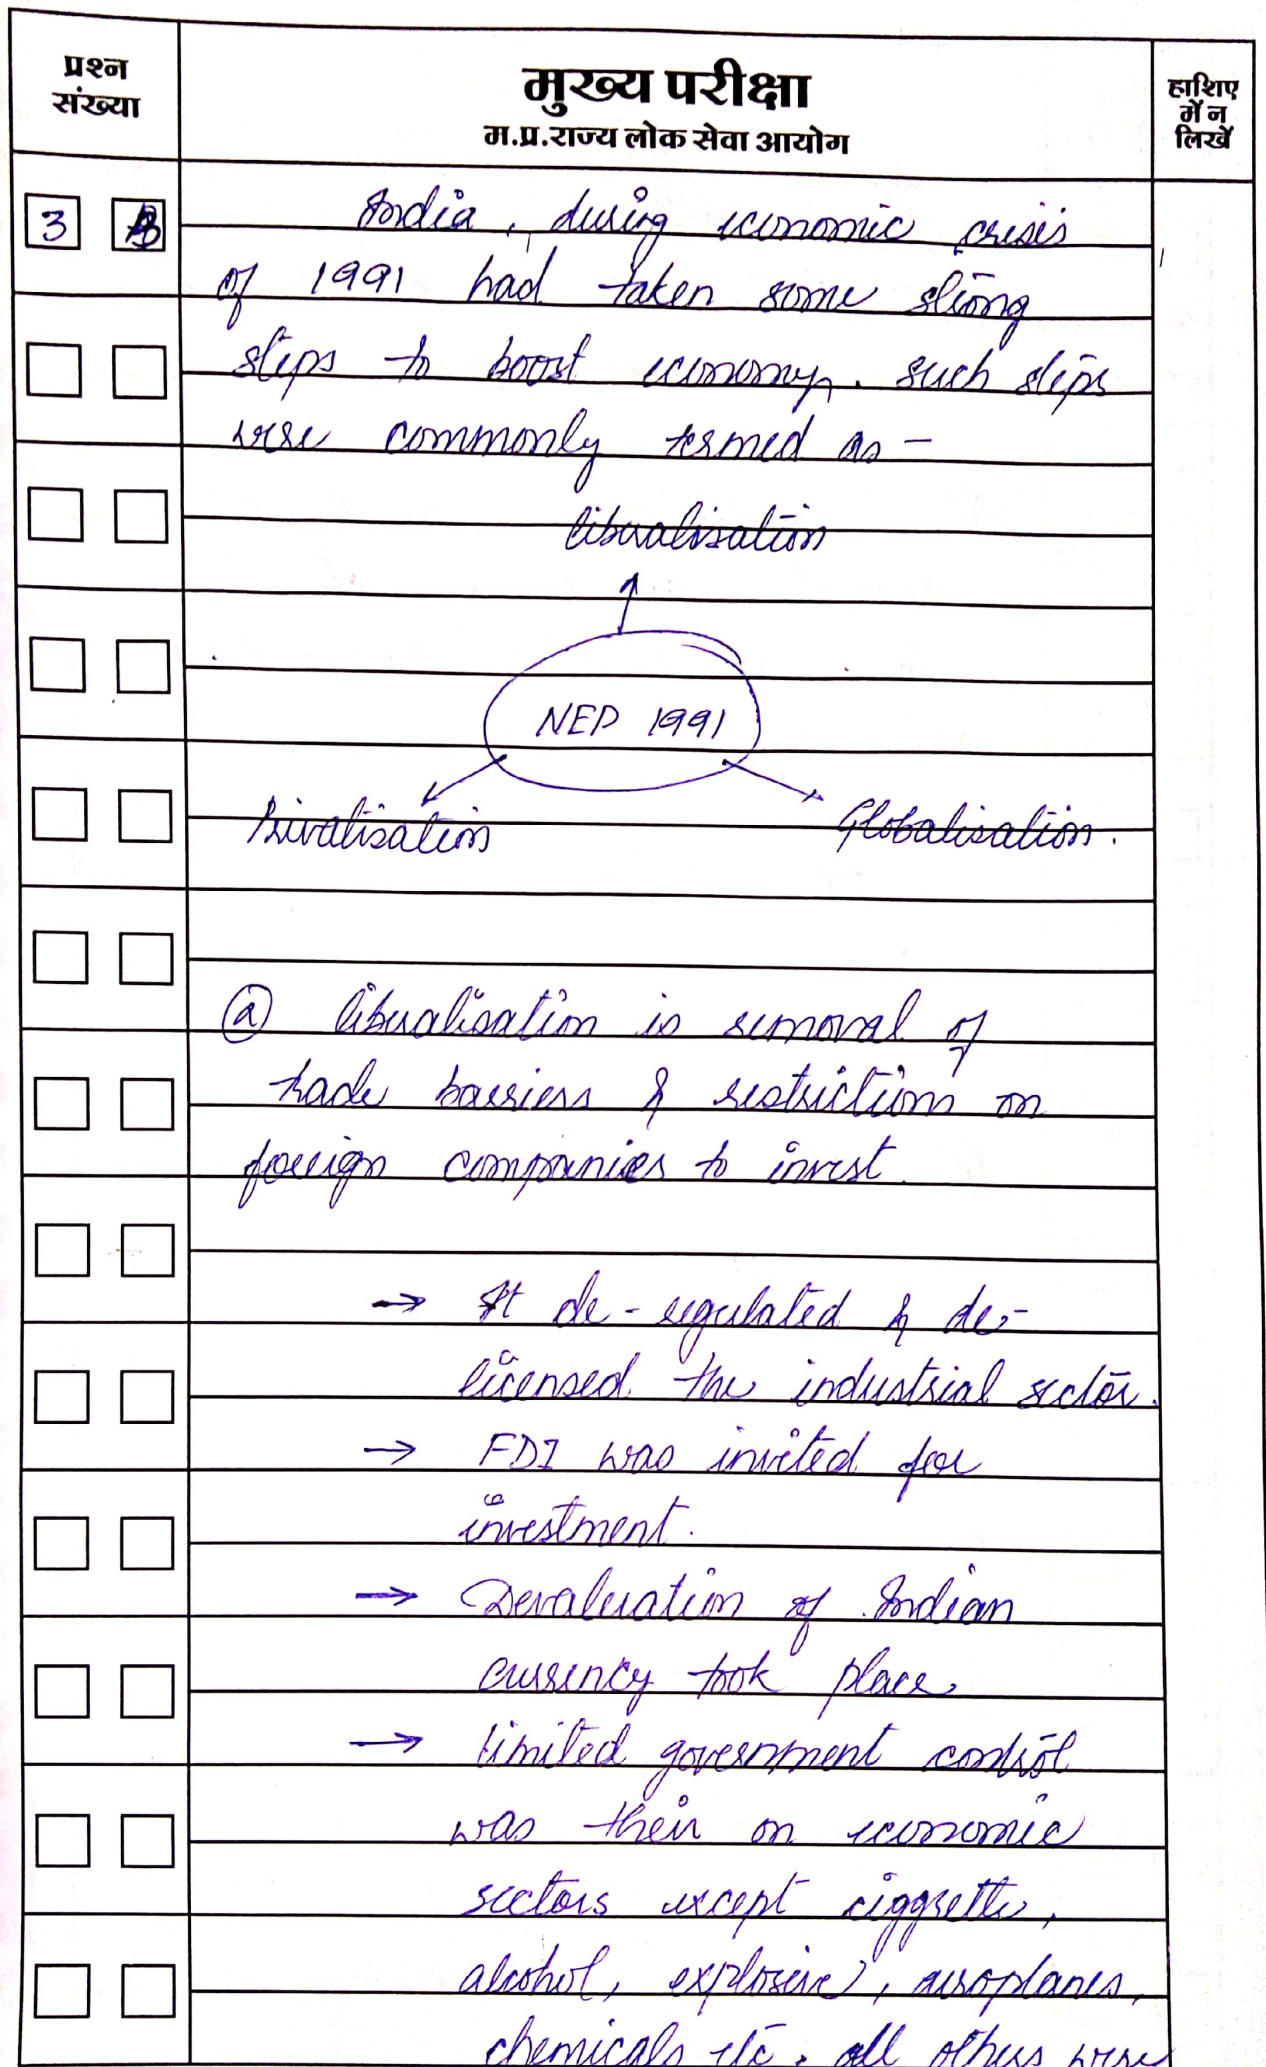 प्रश्न
संख्या
मुख्य परीक्षा
म.प्र.राज्य लोक सेवा आयोग
हाशिए
में न
लिखें
3 B
India, during economic crisis
of 1991 had taken some strong
steps to boost economy. such steps
were commonly termed as -
liberalisation
NEP 1991
Privatisation Globalisation.
(a) liberalisation is removal of
trade barriers & restrictions on
foreign companies to invest.
→ It de-regulated & de-
licensed the industrial sector.
→ FDI was invited for
investment.
→ Devaluation of Indian
currency took place.
→ limited government control
was their on economic
sectors except ciggrette,
alcohol, explosive, aeroplanes,
chemicals etc. all others were